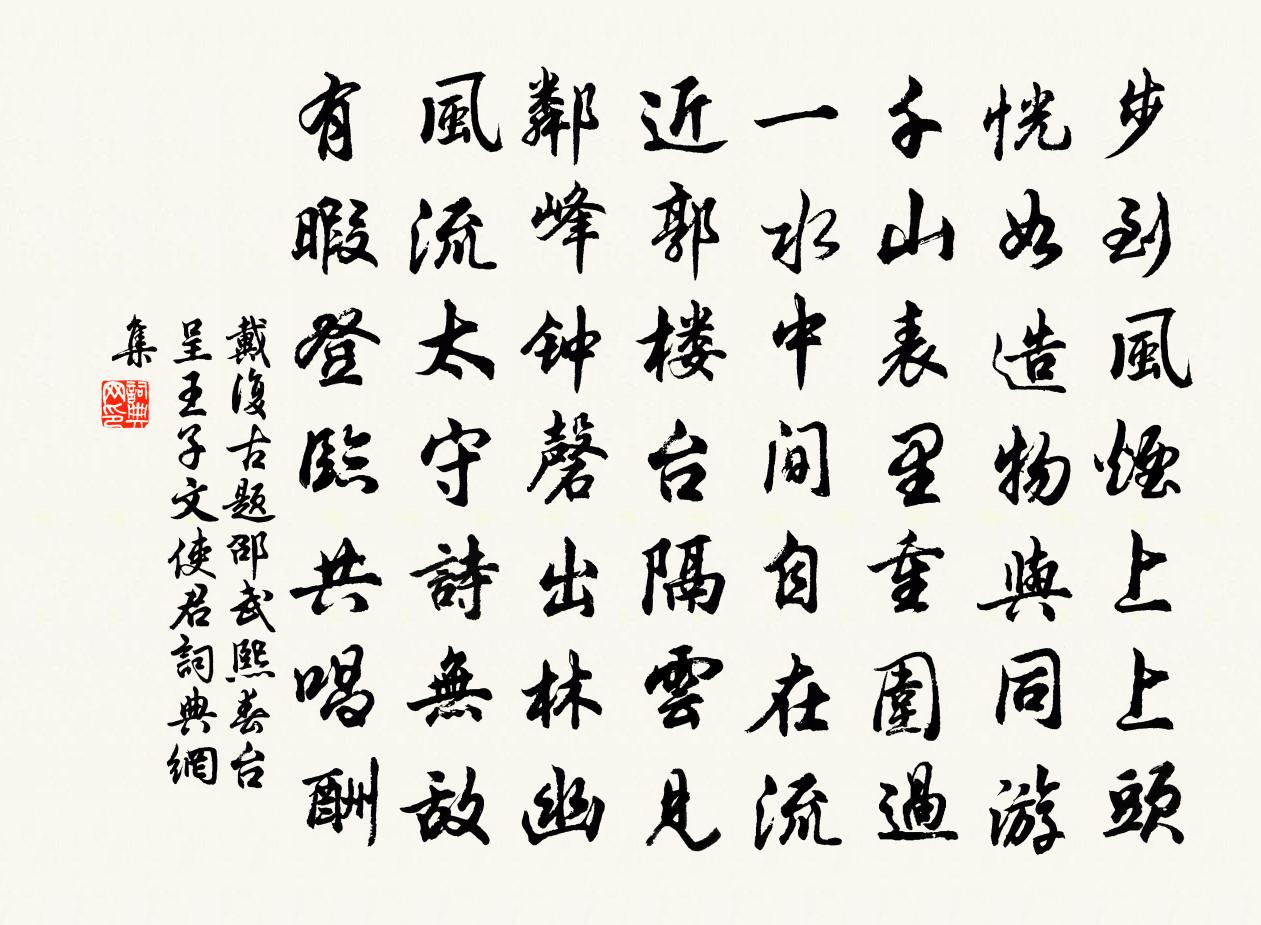 步到風煙上上頭
恍如造物與同游
千山表里重圍過
一水中间自在流
近郭楼台隔雲見
鄰峰钟磬出林幽
風流太守詩無敌
有暇登臨共唱酬
戴復古题邵武熙春台
呈王子文使君詞典網
集
詞典
网印